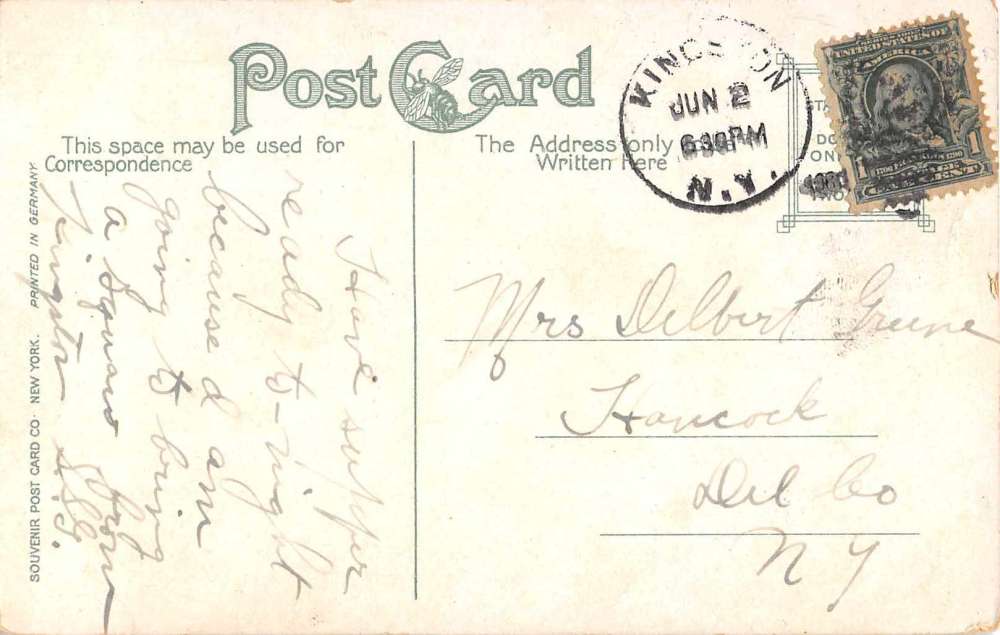 Post Card
This space may be used for
Correspondence
The Address only
Written here
KINGSTON
JUN 2
630 PM
N.Y.
UNITED STATES OF
AMERICA
1 1
ONE CENT
Mrs Delbert Greene
Hancock
Del Co
N Y
Have supper
ready to-night
because I am
going to bring
a Square from
Kingston
SOUVENIR POST CARD CO. NEW YORK. PRINTED IN GERMANY